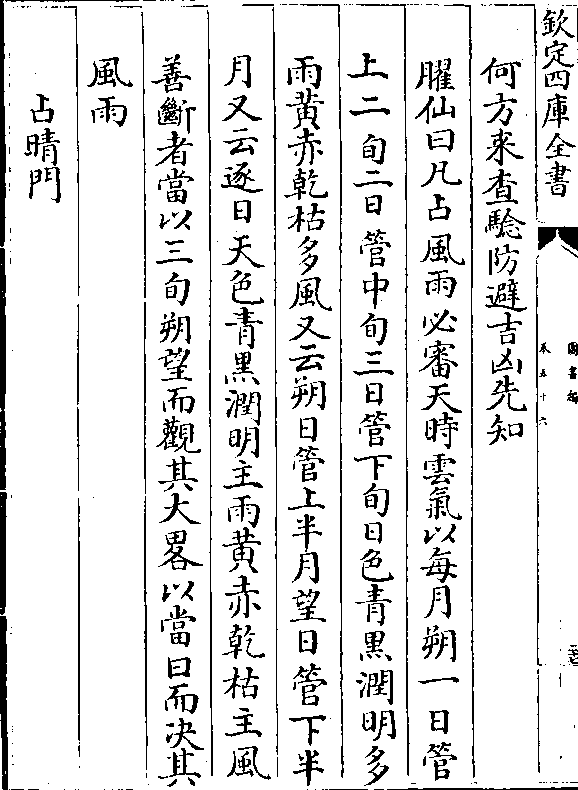 欽定四庫全書
圖書編
卷五十六
何方来查驗防避吉凶先知
臞仙曰凡占風雨必審天時雲氣以每月朔一日管
上二旬二日管中旬三日管下旬日色青黒潤明多
雨黄赤乾枯多風又云朔日管上半月望日管下半
月又云逐日天色青黒潤明主雨黄赤乾枯主風
善斷者當以三旬朔望而觀其大畧以當日而决其
風雨
占晴門